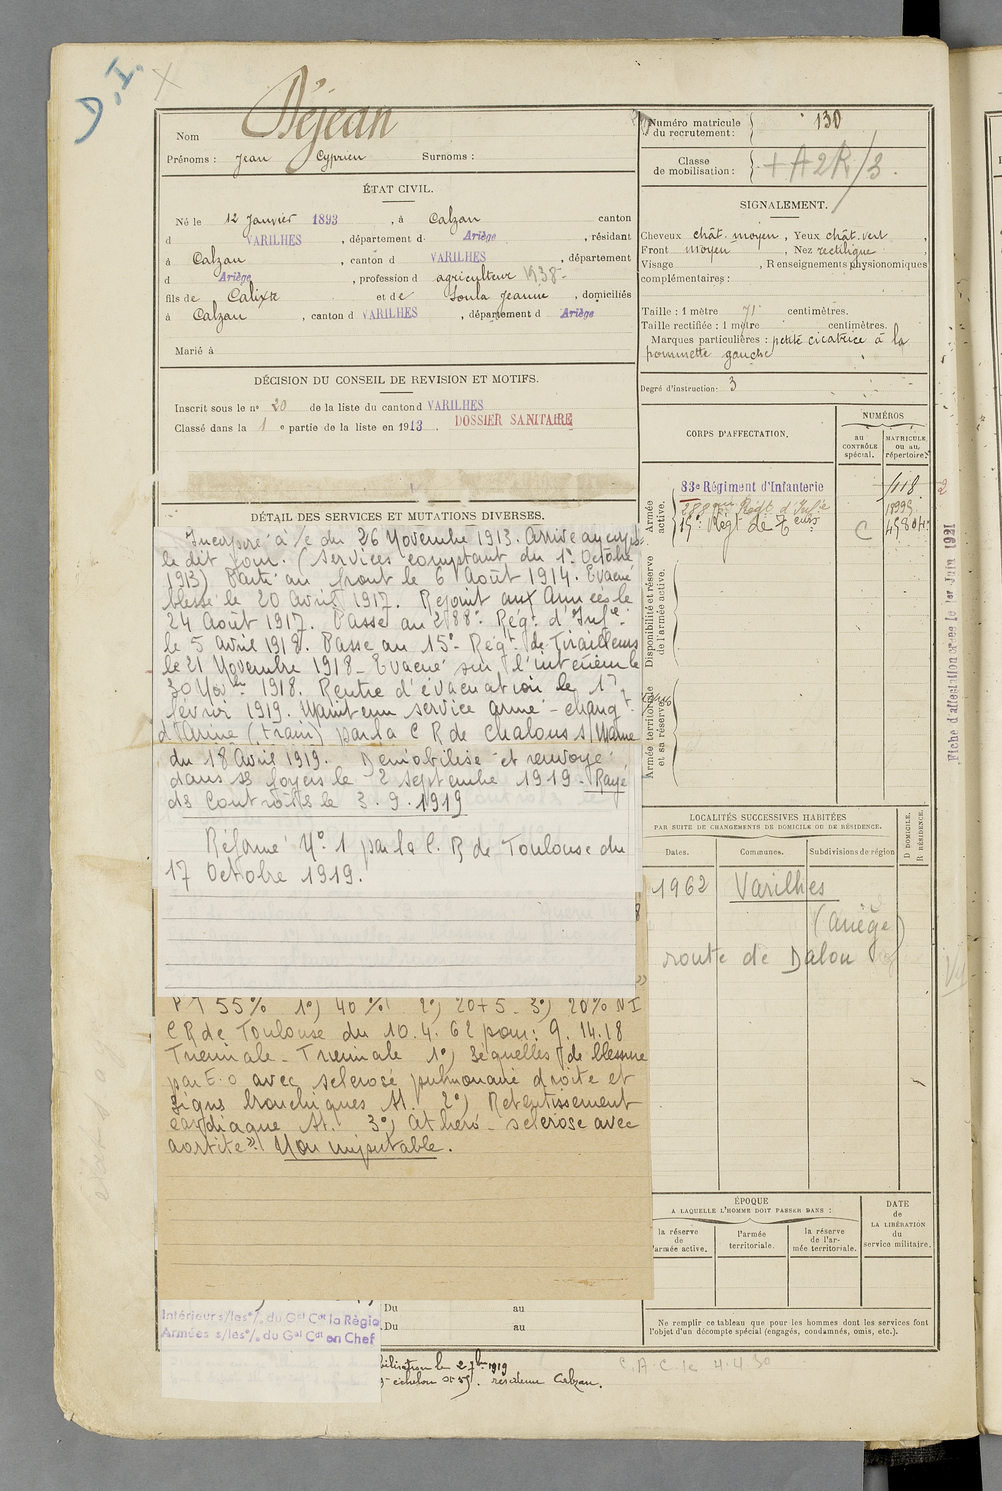 D.I.
Nom Déjean
Prénoms : Jean Cyprien Surnoms :
ÉTAT CIVIL.
Né le 12 Janvier 1893, à Calzan canton
d VARILHES, département d Ariège, résidant
à Calzan, canton d VARILHES, département
d Ariège, profession d agriculteur 1938-
fils de Calixte et de Soula Jeanne, domiciliés
à Calzan, canton d VARILHES, département d Ariège
Marié à
DÉCISION DU CONSEIL DE REVISION ET MOTIFS.
Inscrit sous le nº 20 de la liste du canton d VARILHES
Classé dans la 1 e partie de la liste en 1913. DOSSIER SANITAIRE
DÉTAIL DES SERVICES ET MUTATIONS DIVERSES.
Incorporé à/c du 26 Novembre 1913. Arrivé au corps
le dit jour. (Services comptant du 1er Octobre
1913) Parti au front le 6 Août 1914. Evacué
blessé le 20 Avril 1917. Rejoint aux Armées le
24 Août 1917. Passé au 288e Régt d'Infie
le 5 Avril 1918. Passé au 15e Régt de Tirailleurs
le 21 Novembre 1918 - Evacué sur l'intérieur le
30 Novbre 1918. Rentré d'évacuation le 17
février 1919. Maintenu service armé - changt
d'Arme (train) par la C R de Chalons s/ Marne
du 18 Avril 1919. Démobilisé et renvoyé
dans ses foyers le 2 septembre 1919 - Rayé
des Contrôles le 3.9.1919
Réformé Nº 1 par la C. R de Toulouse du
17 Octobre 1919.
PT 55% 1º) 40% 2º) 20+5 - 3º) 20% NI
CR de Toulouse du 10.4.62 pour : G. 14.18
Triennale - Triennale 1º) séquelles de blessure
par E.O avec sclérose pulmonaire droite et
signes bronchiques At. 2º) Retentissement
cardiaque At. 3º) Athéro-sclérose avec
aortite". Non imputable.
Intérieur s/les º/. du Gal Ct la Régio
Armées s/les º/. du Gal Cdt en Chef
Du au
Du au
bilisation le 2 7bre 1919
échelon résidence Calzan.
Numéro matricule
du recrutement : 130
Classe
de mobilisation : + A2R/3.
SIGNALEMENT.
Cheveux chât. moyen, Yeux chât. vert,
Front moyen, Nez rectiligne
Visage, Renseignements physionomiques
complémentaires :
Taille : 1 mètre 71 centimètres.
Taille rectifiée : 1 mètre centimètres.
Marques particulières : petite cicatrice à la
pommette gauche
Degré d'instruction 3
CORPS D'AFFECTATION.
NUMÉROS
au
CONTRÔLE
spécial.
MATRICULE
OU AU
répertoire.
Armée
active.
83e Régiment d'Infanterie 118
288eme Régt d'Infie
15e Régt de Teurs C
Disponibilité et réserve
de l'armée active.
Armée territoriale
et sa réserve.
Fiche d'affectation créée le 1er Juin 1921
LOCALITÉS SUCCESSIVES HABITÉES
PAR SUITE DE CHANGEMENTS DE DOMICILE OU DE RÉSIDENCE.
Dates. Communes. Subdivisions de région
D DOMICILE.
R RÉSIDENCE.
1962 Varilhes
(Ariège)
route de Dalou
ÉPOQUE
A LAQUELLE L'HOMME DOIT PASSER DANS :
DATE
de
LA LIBÉRATION
du
service militaire.
la réserve
de
l'armée active.
l'armée
territoriale.
la réserve
de l'ar-
mée territoriale.
Ne remplir ce tableau que pour les hommes dont les services font
l'objet d'un décompte spécial (engagés, condamnés, omis, etc.).
C.A.C. le 4.4.30